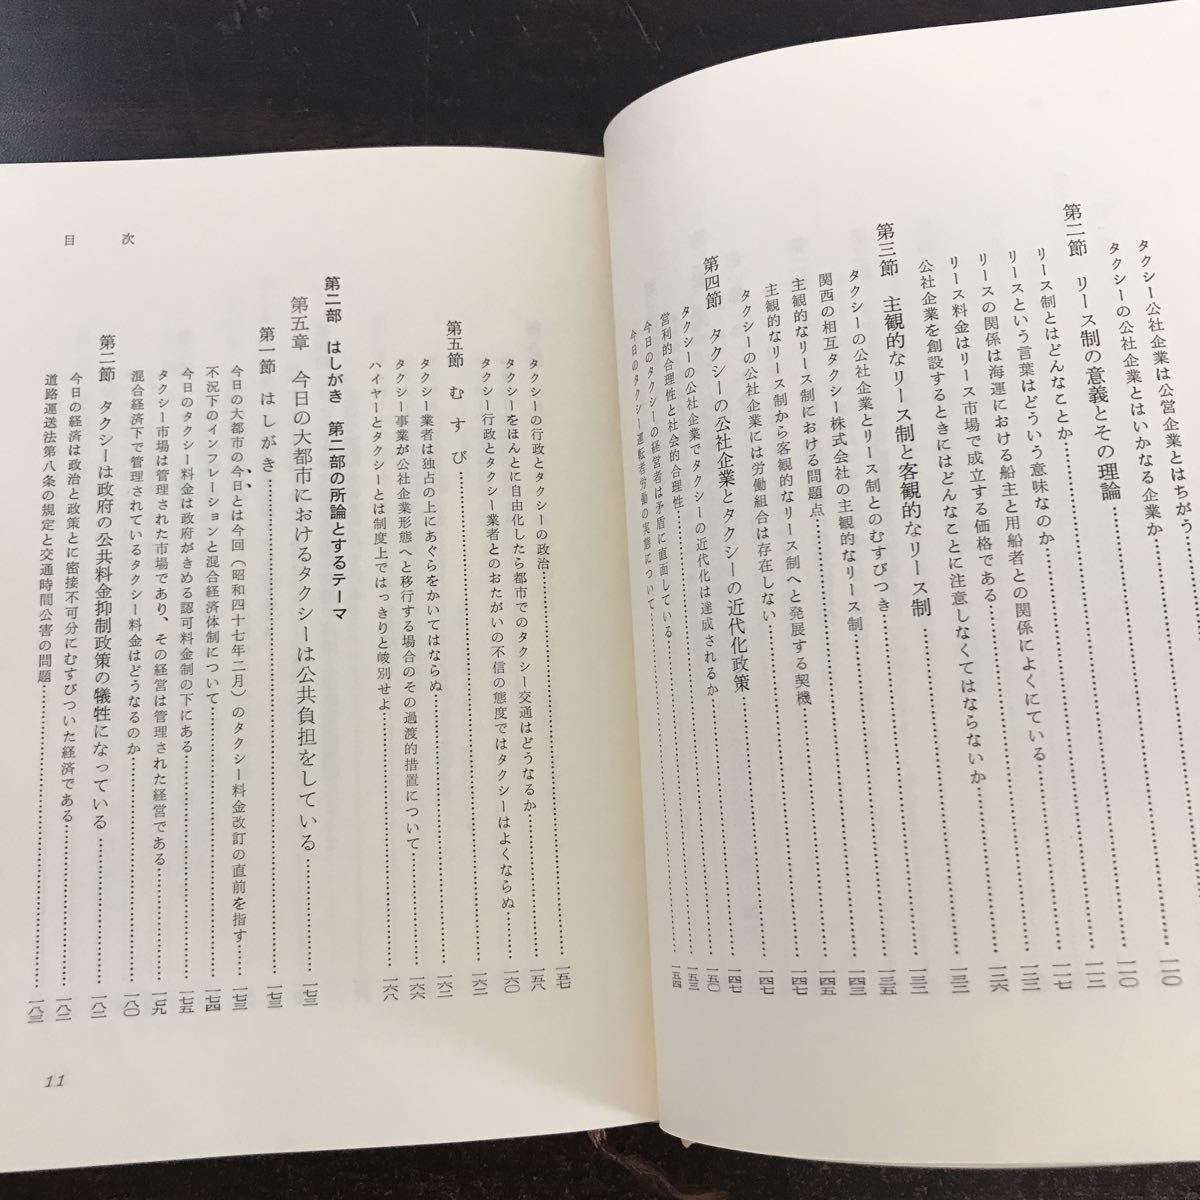 タクシー公社企業は公営企業とはちがう……一一〇
タクシーの公社企業とはいかなる企業か……一一〇
第二節　リース制の意義とその理論……一一二
リース制とはどんなことか……一一七
リースという言葉はどういう意味なのか……
リースの関係は海運における船主と用船者との関係によくにている……一二六
リース料金はリース市場で成立する価格である……
公社企業を創設するときにはどんなことに注意しなくてはならないか……
第三節　主観的なリース制と客観的なリース制……
タクシーの公社企業とリース制とのむすびつき……一三五
関西の相互タクシー株式会社の主観的なリース制……一四三
主観的なリース制における問題点……一四五
主観的なリース制から客観的なリース制へと発展する契機……一四七
タクシーの公社企業には労働組合は存在しない……一四七
第四節　タクシーの公社企業とタクシーの近代化政策……一四七
タクシーの公社企業でタクシーの近代化は達成されるか……一五〇
営利的合理性と社会的合理性……
今日のタクシーの経営者は矛盾に直面している……一五三
今日のタクシー運転者労働の実態について……一五四
タクシーの行政とタクシーの政治……一五七
タクシーをほんとに自由化したら都市でのタクシー交通はどうなるか……一五八
タクシー行政とタクシー業者とのおたがいの不信の態度ではタクシーはよくならぬ……一六〇
第五節　むすび……一六二
タクシー業者は独占の上にあぐらをかいてはならぬ……一六二
タクシー事業が公社企業形態へと移行する場合のその過渡的措置について……一六六
ハイヤーとタクシーとは制度上ではっきりと峻別せよ……一六八
第二部　はしがき　第二部の所論とするテーマ
第五章　今日の大都市におけるタクシーは公共負担をしている……一七三
第一節　はしがき……一七三
今日の大都市の今日とは今回（昭和四十七年二月）のタクシー料金改訂の直前を指す……一七三
不況下のインフレーションと混合経済体制について……一七四
今日のタクシー料金は政府がきめる認可料金制の下にある……一七五
タクシー市場は管理された市場であり、その経営は管理された経営である……一七九
混合経済下で管理されているタクシー料金はどうなるのか……一八〇
第二節　タクシーは政府の公共料金抑制政策の犠牲になっている……一八二
今日の経済は政治と政策とに密接不可分にむすびついた経済である……一八二
道路運送法第八条の規定と交通時間公害の問題……一八三
目　次
11